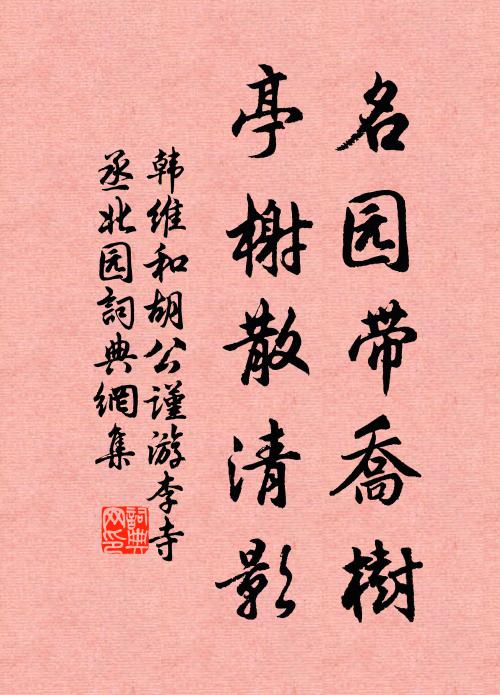 名园带喬樹
亭榭散清影
韩维和胡公谨游李寺
丞北园詞典網集
詞典
网印